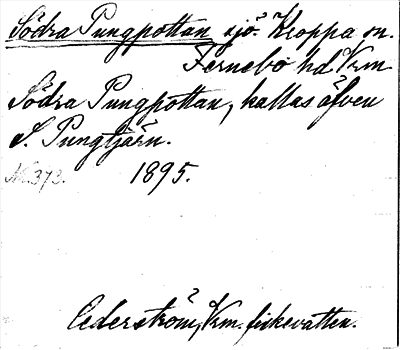 Södra Pungpottan sjö. Kroppa sn.
Fernebo hd. Vrm
Södra Pungpottan, kallas äfven
S. Pungtjärn.
N. 373. 1895.
Cederström, Vrm. fiskevatten.